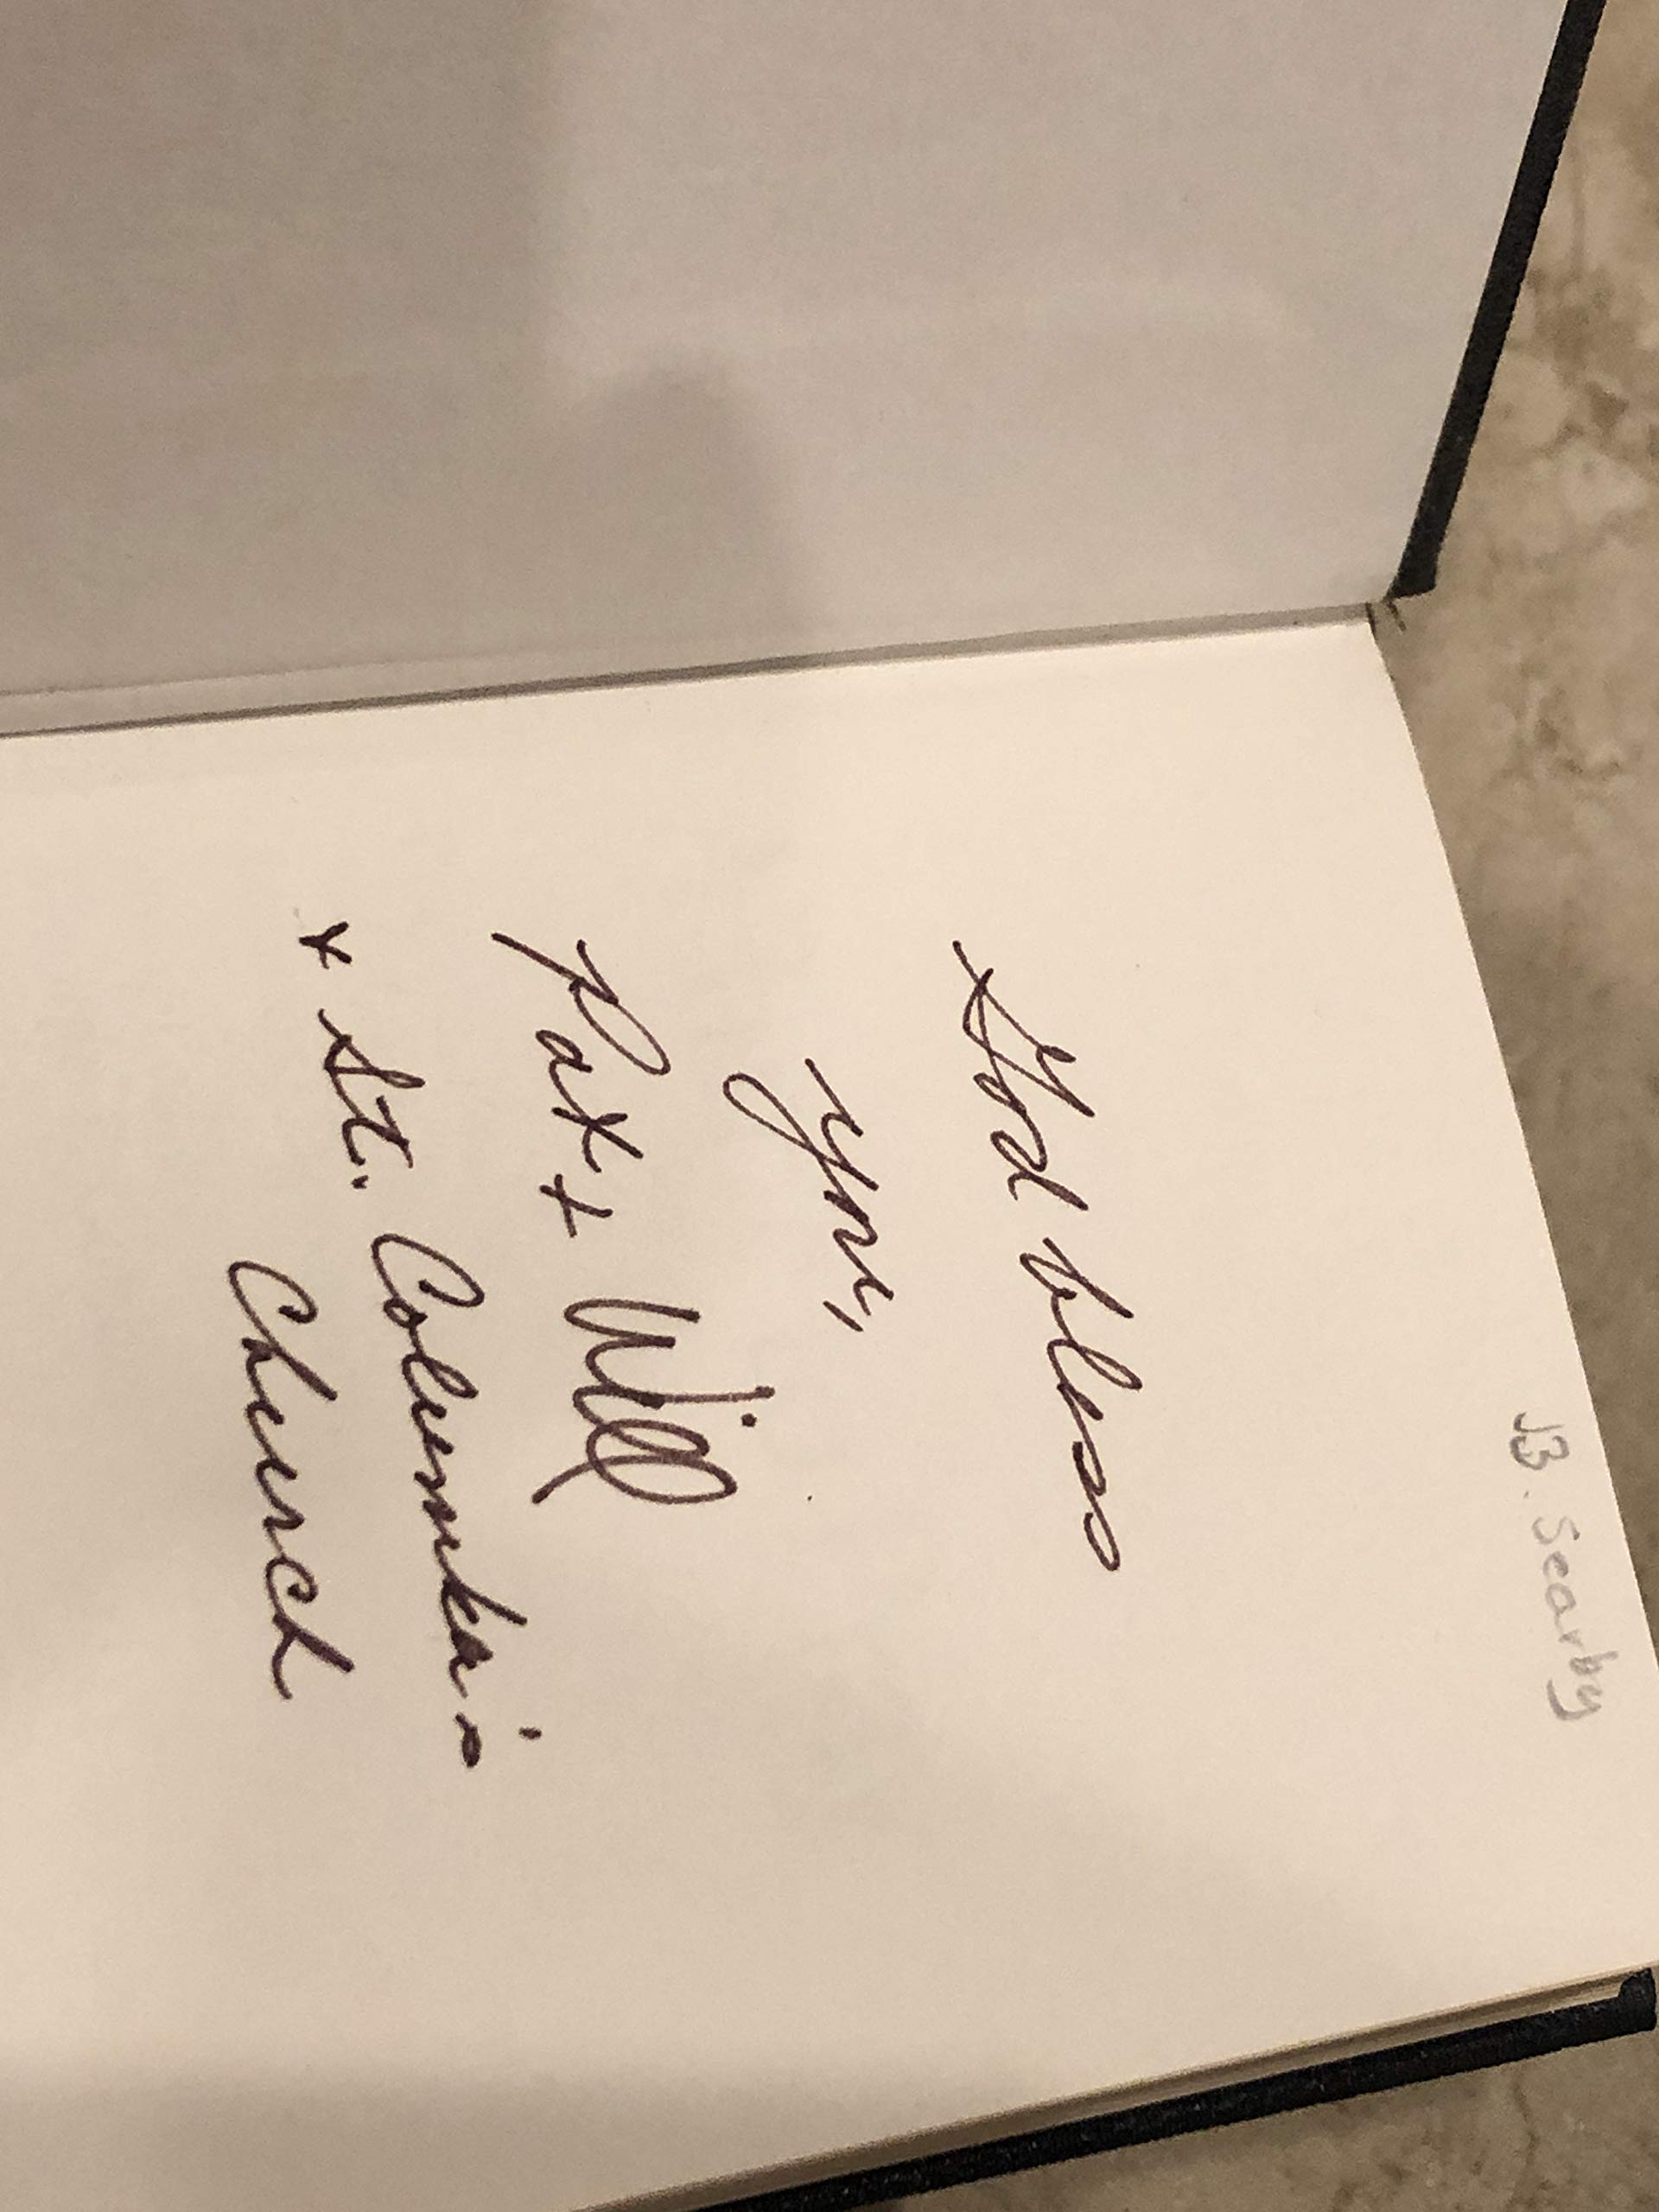 JB. Searby
God bless
you,
Pax + Will
* St. Columka's
Church